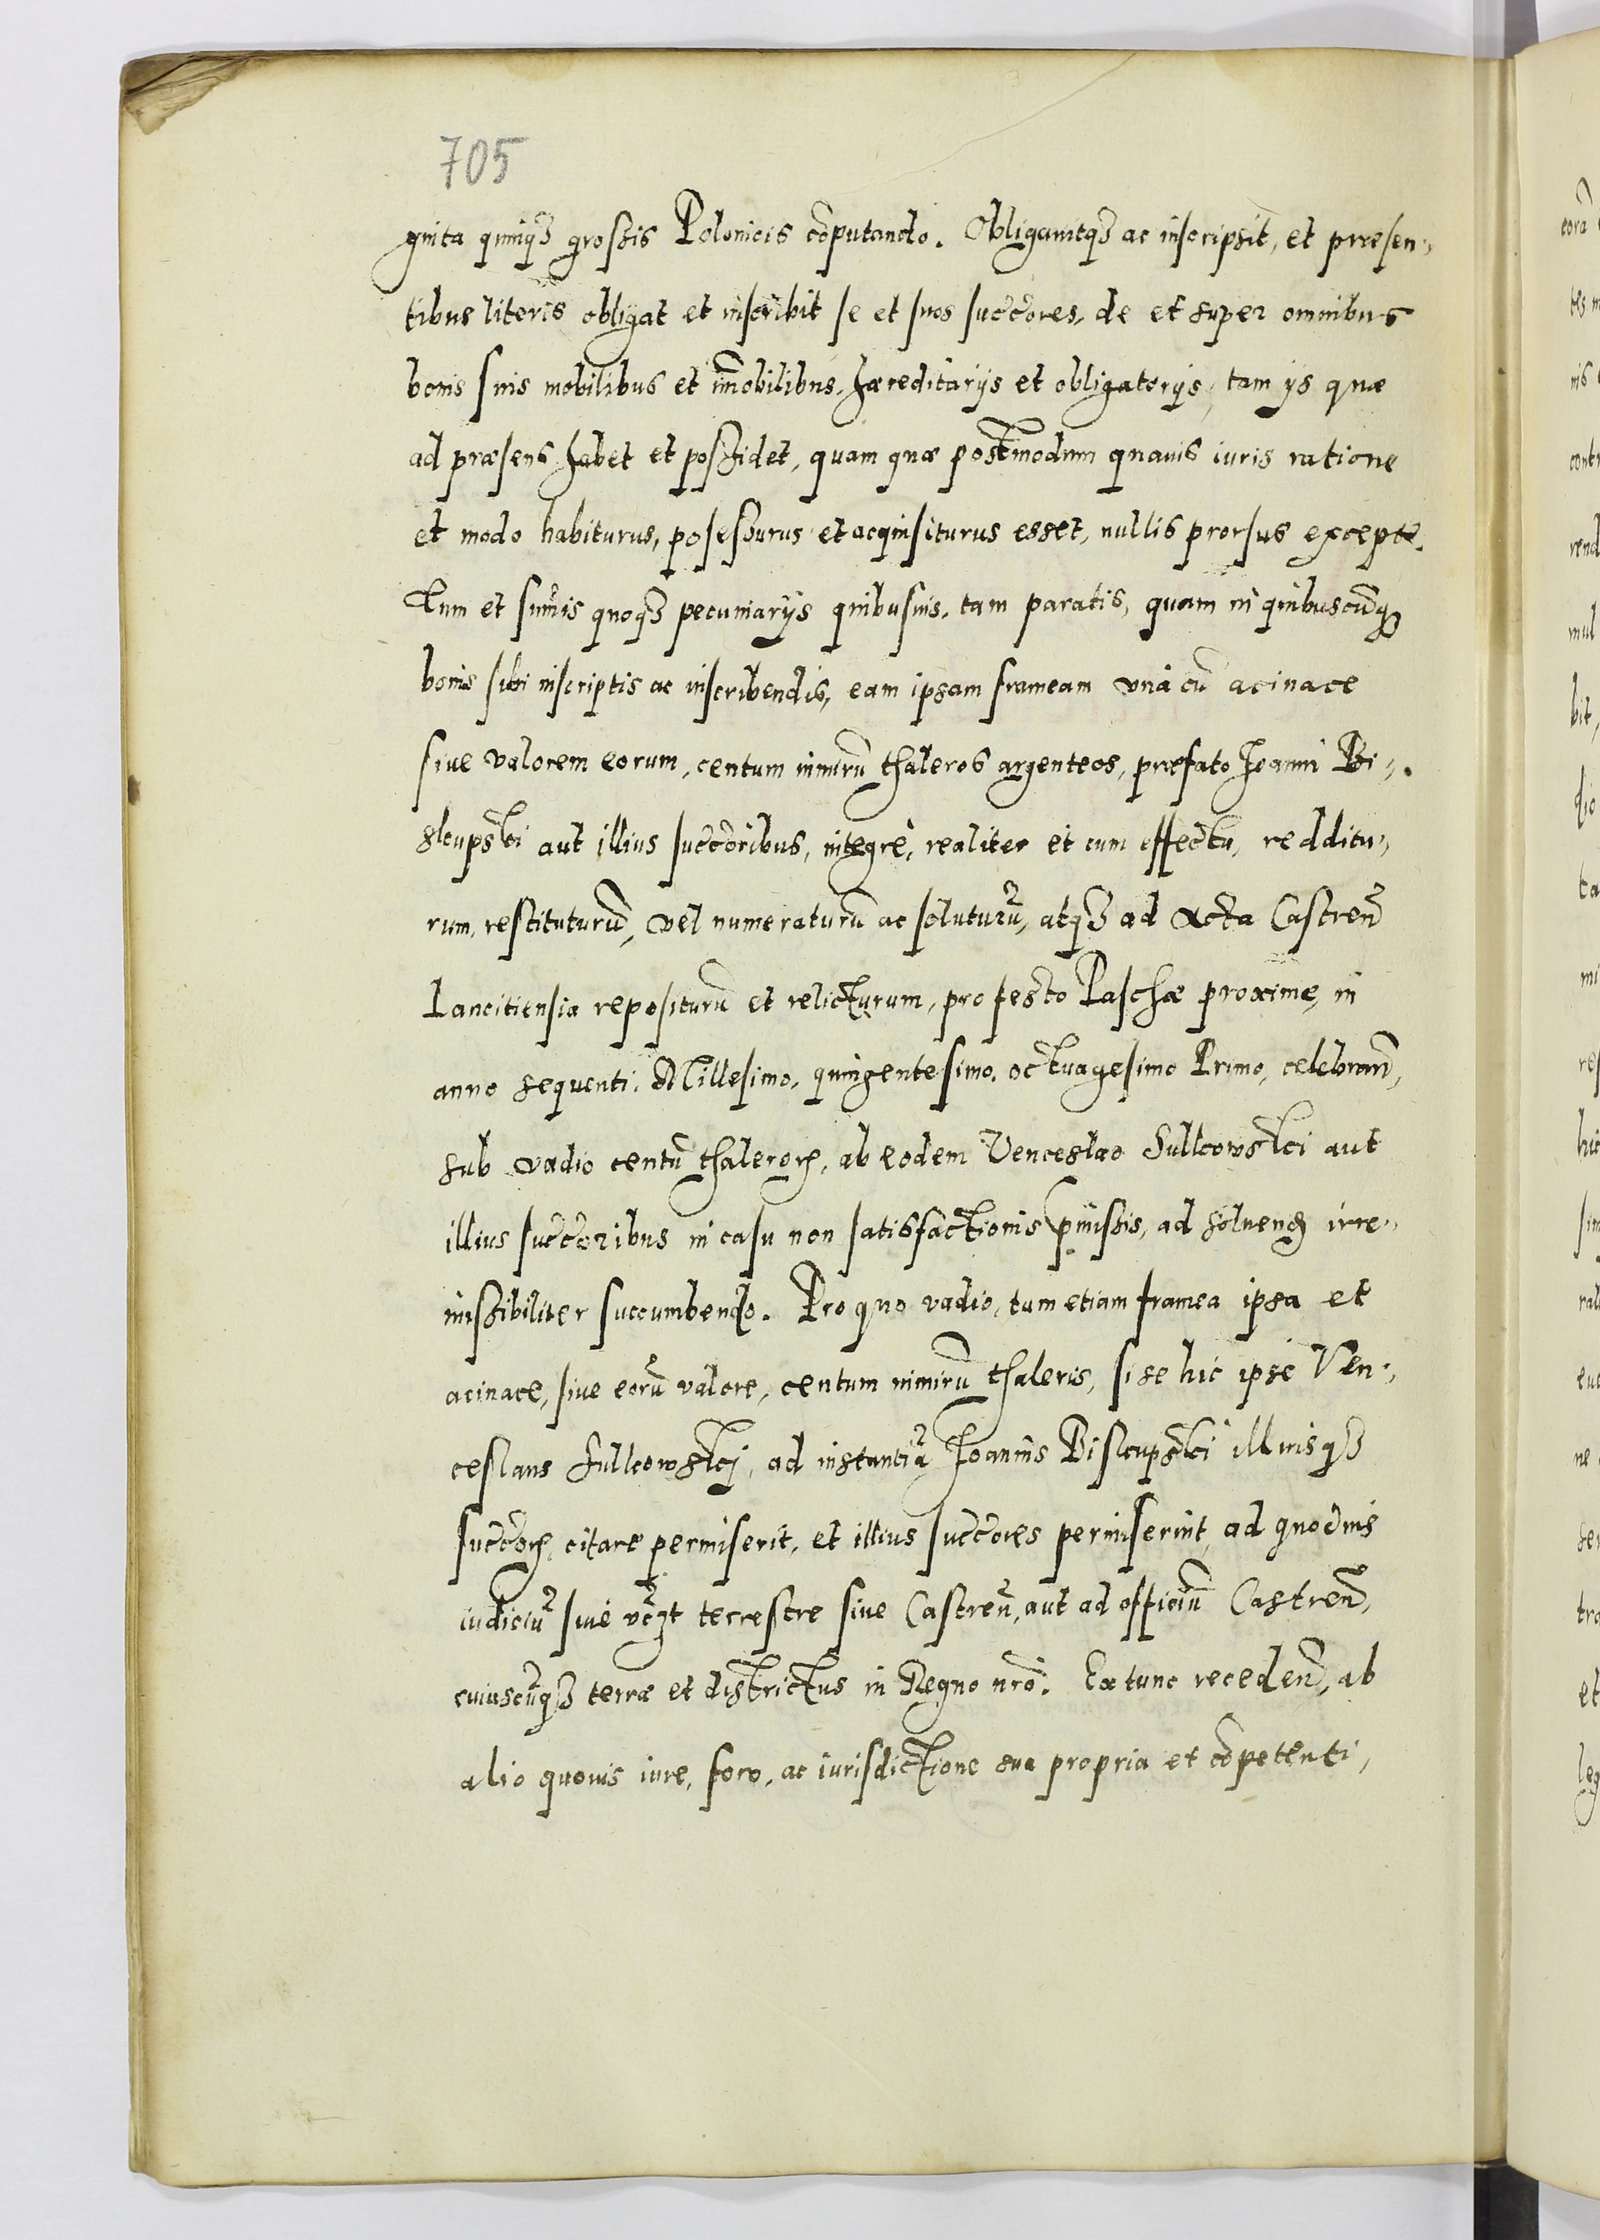 705
ginta quinqȝ grossis Polonicis cōputando. Obligauitqȝ ac inscripsit, et præsen,,
tibus literis obligat et inscribit se et suos succ̄cores, de et super omnibus
bonis suis mobilibus et im̄obilibus, hæreditarijs et obligatorijs, tam ijs quæ
ad præsens habet et possidet, quam quæ postmodum quauis iuris ratione
et modo habiturus, posessurus et acquisiturus esset, nullis prorsus except̄.
Tum et sum̄is quoqȝ pecuniarijs quibusuis, tam paratis, quam in quibuscūqȝ
bonis sibi inscriptis ac inscribendis, eam ipsam frameam vnà cū acinace
siue valorem eorum, centum nimirū thaleros argenteos, præfato Joanni Bi,,
skupski aut illius succ̄coribus, integrè, realiter et cum effectu, redditu,,
rum, restituturū, vel numeraturū ac soluturū, atqȝ ad Acta Castren̄
Lancitiensia repositurū et relicturum, pro festo Paschæ proxime, in
anno sequenti, Millesimo, quingentesimo, octuagesimo Primo, celebran̄,
sub vadio centū thalerorꝝ, ab eodem Venceslao Sulkowski aut
illius succ̄coribus in casu non satisfactionis p̄missis, ad soluendꝫ irre,,
missibiliter succumbendo. Pro quo vadio, tum etiam framea ipsa et
acinace, siue eorū valore, centum nimirū thaleris, si se hic ipse Ven,,
ceslaus Sulkowskj, ad instantiā Joannis Biskupski illiusqȝ
succ̄corꝝ, citare permiserit, et illius succ̄cores permiserint, ad quoduis
iudiciū siue terrestre siue Castren̄, aut ad officiū Castren̄,
cuiuscūqȝ terræ et districtus in Regno nr̄o. Ex tunc receden̄, ab
alio quouis iure, foro, ac iurisdictione sua propria et cōpetenti,